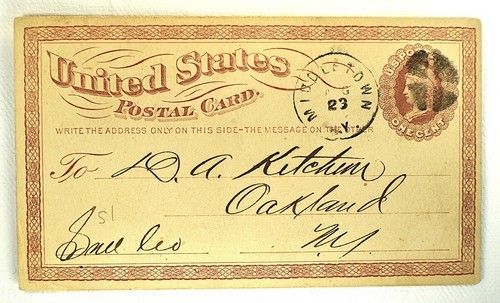 United States
POSTAL CARD.
WRITE THE ADDRESS ONLY ON THIS SIDE-THE MESSAGE ON THE OTHER
MIDDLETOWN
23
N.Y.
U.S. POSTAGE
ONE CENT
To D. A. Ketchum
Oakland
51
NY